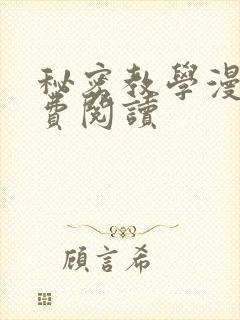 秘密教學漫
費閱讀
顧言希